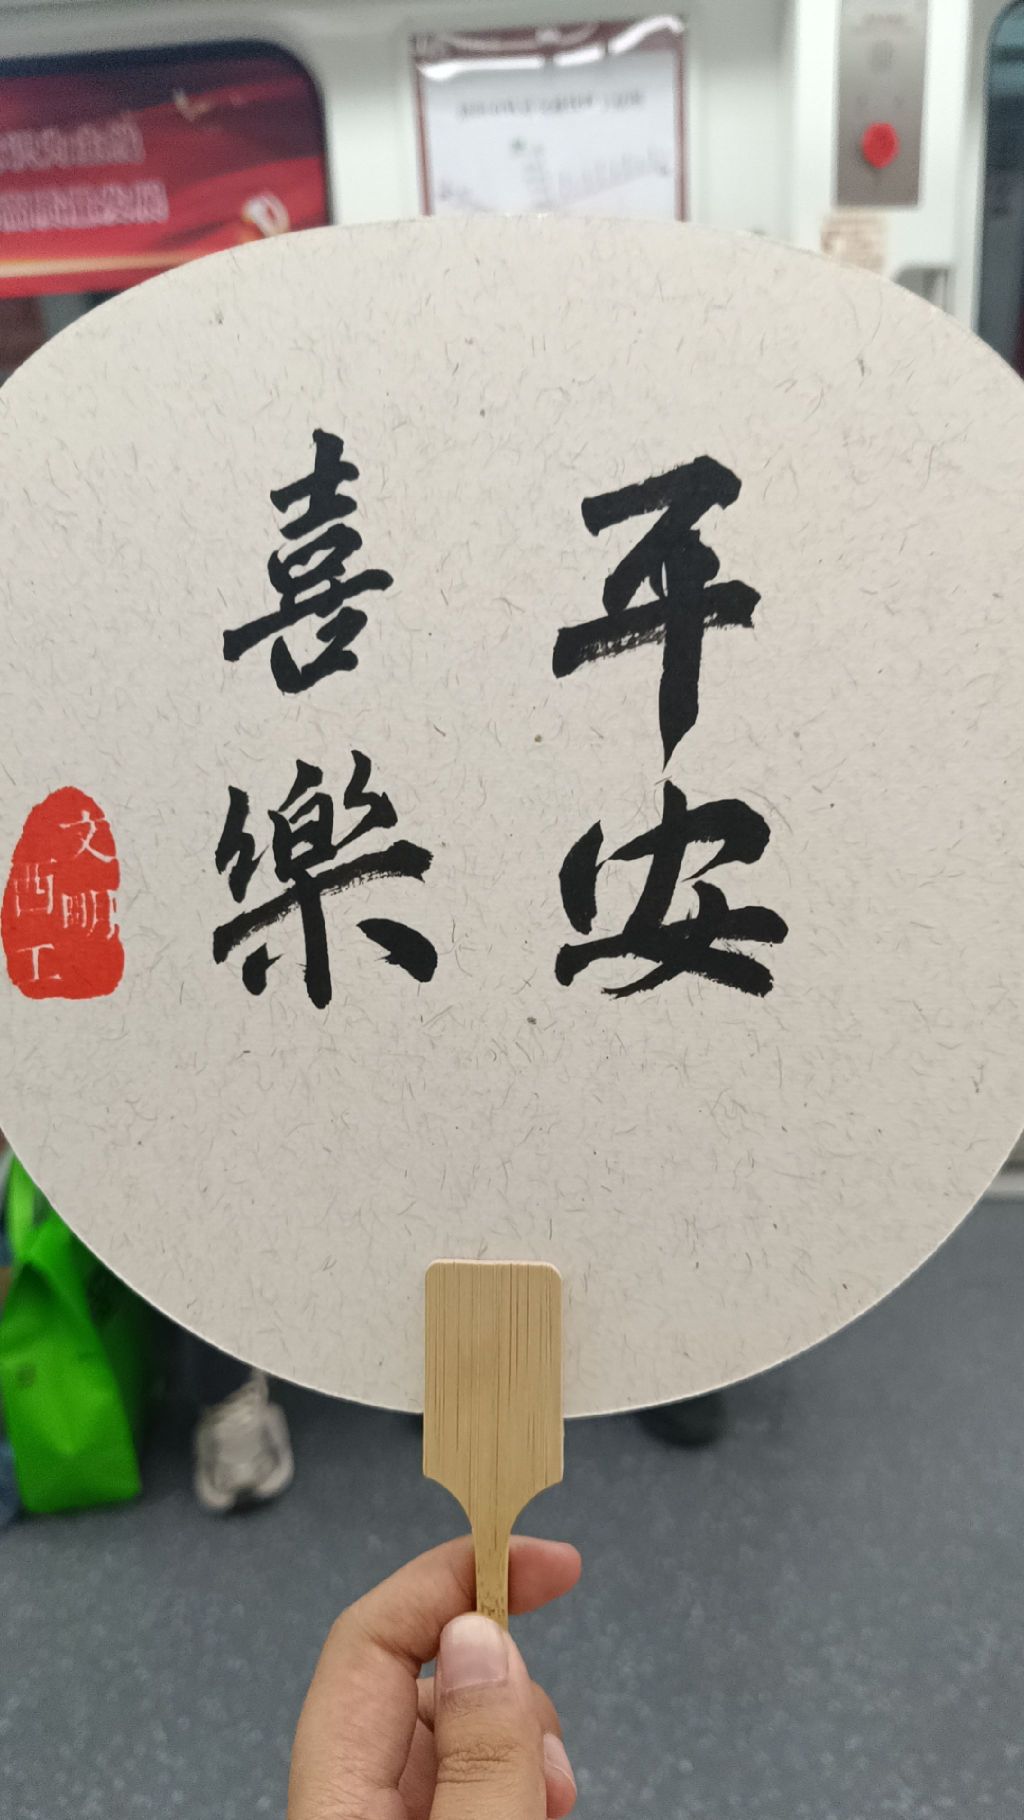 平安
喜樂
文明
西工